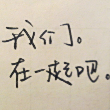 我们。
在一起吧。